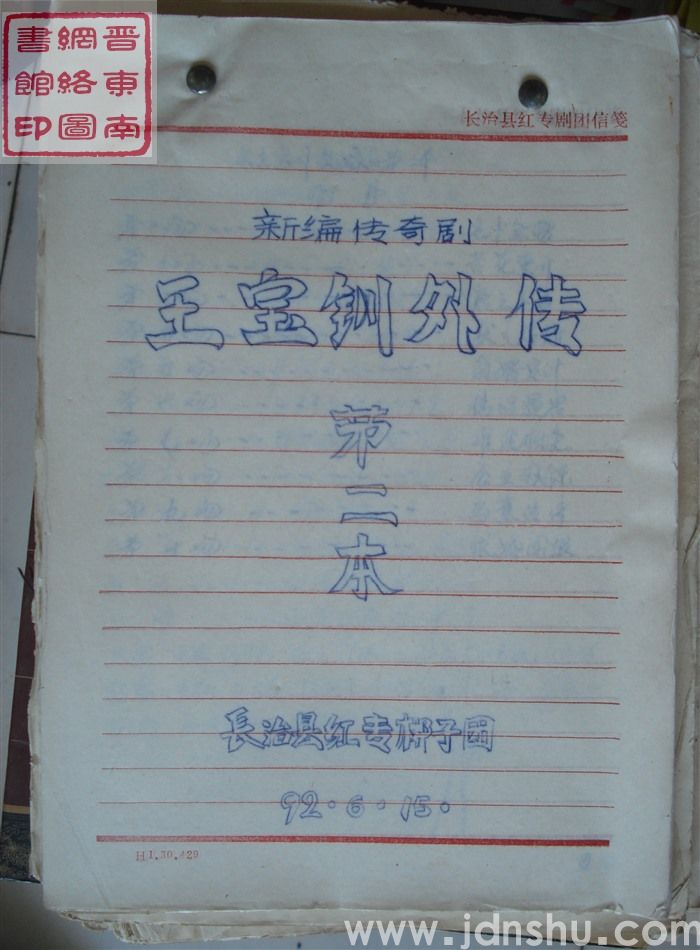 晋东南
網絡圖
書館印
长治县红专剧团信笺
新编传奇剧
王宝钏外传
第二本
長治县红专梆子团
92·6·15·
HJ.30.429
www.jdnshu.com